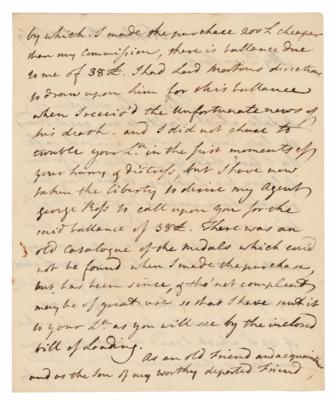 by which I made the purchase 200£ cheaper
than my Commission, there is ballance due
to me of 38£. I had Lord Mortons directions
to draw upon him for this ballance
when I receiv'd the Unfortunate news of
his death. and I did not chuse to
trouble your Lp. in the first moments of
your hurry & distress, but I have now
taken the liberty to desire my Agent
George Ross to call upon you for the
said ballance of 38£. There was an
old Catalogue of the medals which could
not be found when I made the purchase,
but has been since, & tho' not compleat
may be of great use so that I have sent it
to your Lp. as you will see by the inclosed
bill of Loading.
As an old Friend and acquaintance
and as the Son of my worthy departed Friend,